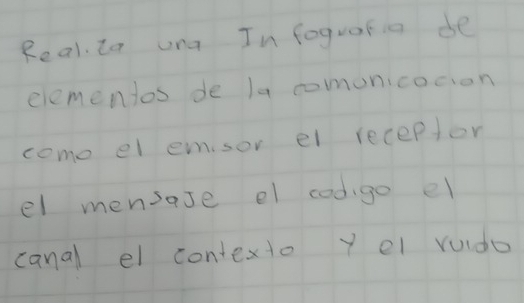 Realiza una Infografia de
elementos de la comunicacion
como el emisor el receptor
el mensaje el codigo el
canal el contexto y el ruido